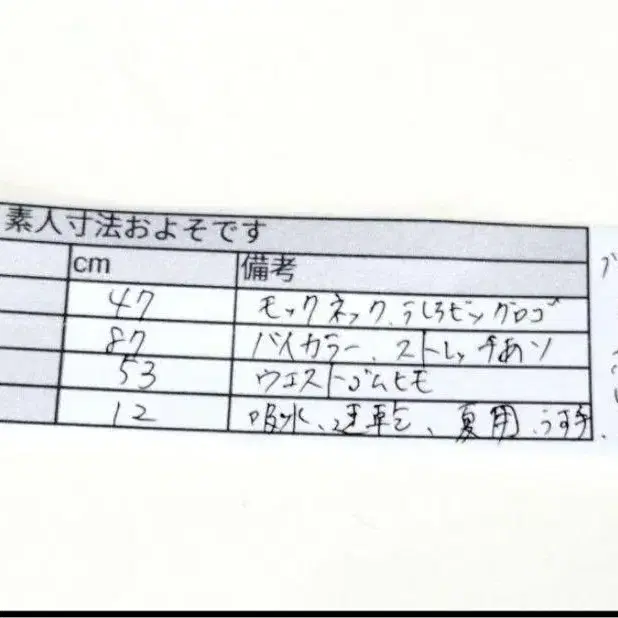 素人寸法およそです
cm 備考
47 モックネック、うしろビッグロゴ
87 バイカラー、ストレッチあり
53 ウエストゴムヒモ
12 吸水、速乾、夏用、うす手、